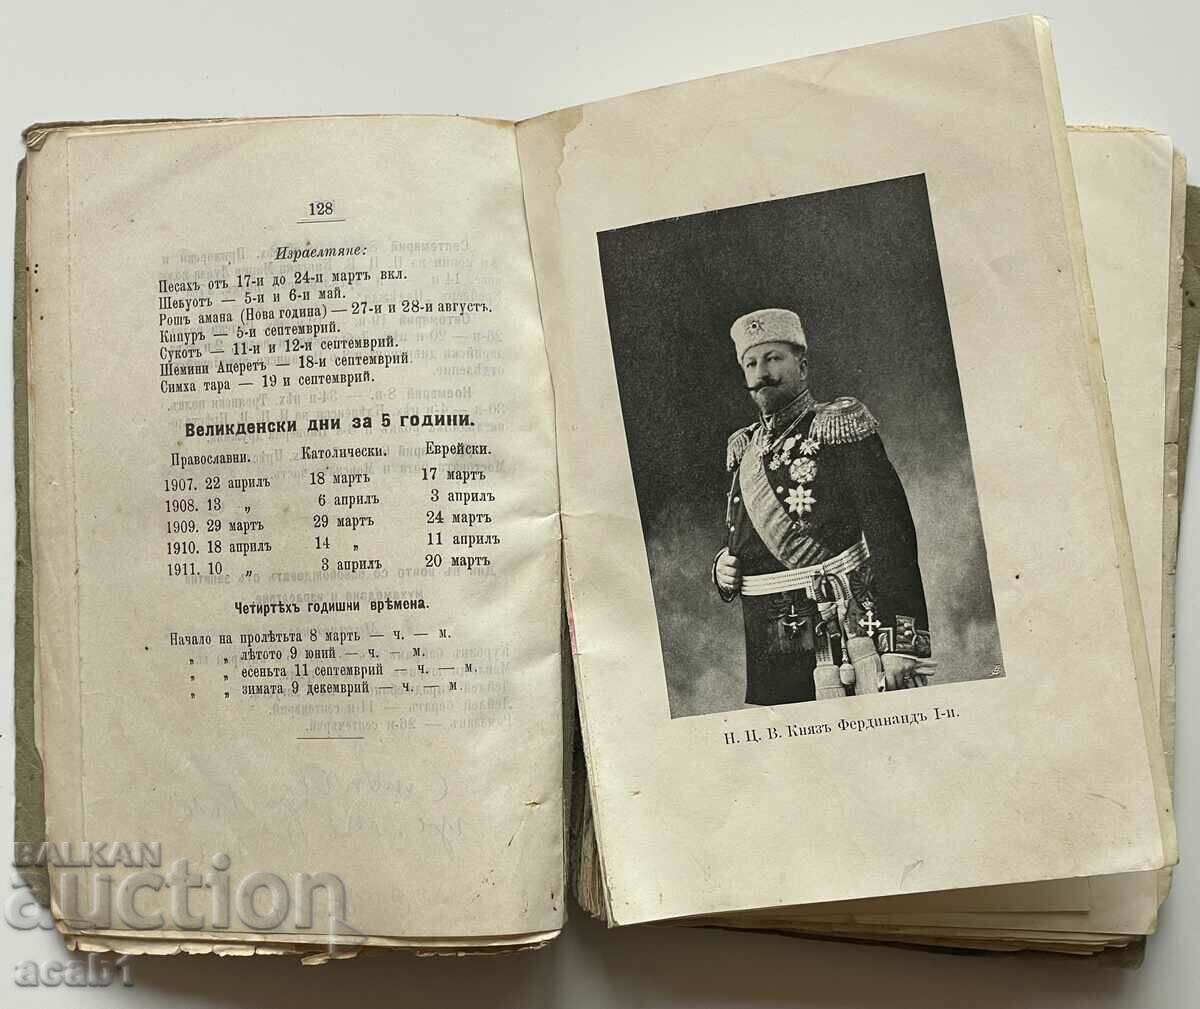 128
Израелтяне:
Песахъ отъ 17-и до 24-и мартъ вкл.
Шебуотъ — 5-и и 6-и май.
Рошъ амана (Нова година) — 27-и и 28-и августъ.
Кипуръ — 5-и септемврий.
Сукотъ — 11-и и 12-и септемврий.
Шемини Ацеретъ — 18-и септемврий.
Симха тара — 19 и септемврий.
Великденски дни за 5 години.
Православни. Католически. Еврейски.
1907. 22 априлъ 18 мартъ 17 мартъ
1908. 13 „ 6 априлъ 3 априлъ
1909. 29 мартъ 29 мартъ 24 мартъ
1910. 18 априлъ 14 „ 11 априлъ
1911. 10 „ 3 априлъ 20 мартъ
Четиртѣхъ годишни врѣмена.
Начало на пролѣтьта 8 мартъ — ч. — м.
„ „ лѣтото 9 юний — ч. — м.
„ „ есеньта 11 септемврий — ч. — м.
„ „ зимата 9 декемврий — ч. — м.
Н. Ц. В. Князъ Фердинандъ I-и.
BALKAN
auction
acab1